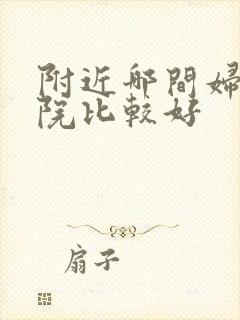 附近邮間婦
院比較好
扇子